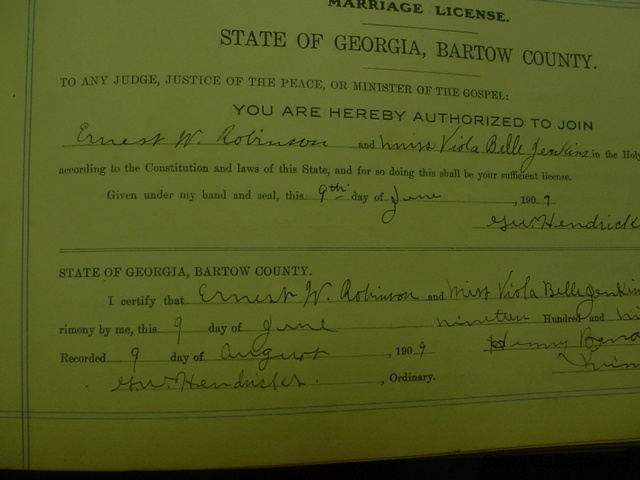 MARRIAGE LICENSE.
STATE OF GEORGIA, BARTOW COUNTY.
TO ANY JUDGE, JUSTICE OF THE PEACE, OR MINISTER OF THE GOSPEL:
YOU ARE HEREBY AUTHORIZED TO JOIN
Ernest W. Robinson and Miss Viola Belle Jenkins in the Holy
according to the Constitution and laws of this State, and for so doing this shall be your sufficient license.
Given under my hand and seal, this 9th day of June, 1909
G.W. Hendrick
STATE OF GEORGIA, BARTOW COUNTY.
I certify that Ernest W. Robinson and Miss Viola Belle Jenkin
rimony by me, this 9 day of June nineteen Hundred and
Recorded 9 day of August, 1909 Henry
G.W. Hendricks, Ordinary.